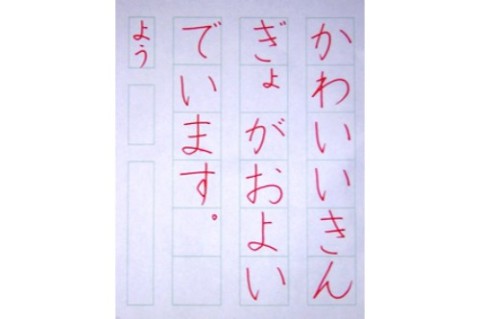 かわいいきん
ぎょがおよい
でいます。
よう